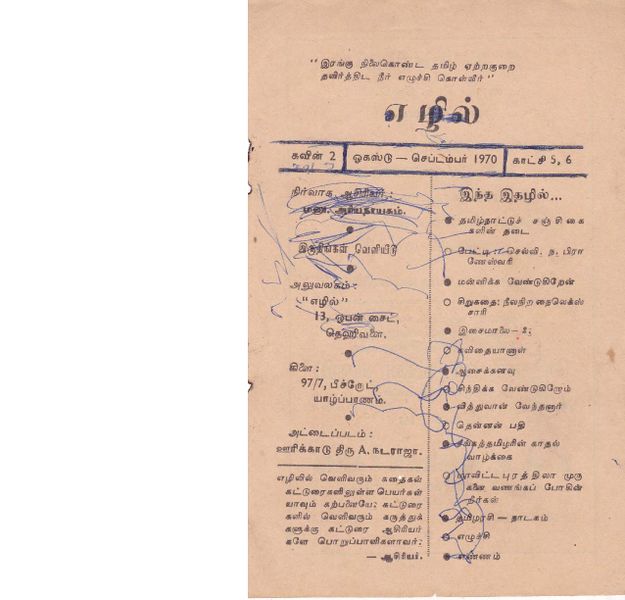 "இரங்கு நிலைகொண்ட தமிழ் ஏற்றகுறை
தவிர்த்திட நீர் எழுச்சி கொள்வீர்"
எழில்
கவின் 2
ஓகஸ்டு — செப்டம்பர் 1970
காட்சி 5, 6
நிர்வாக ஆசிரியர் :
மண. அரியநாயகம்.
இருதிங்கள் வெளியீடு
அலுவலகம்:
"எழில்"
13, ஓபன் சைட்,
தெஹிவளை.
கிளை :
97/7, பிச்ரோட்,
யாழ்ப்பாணம்.
அட்டைப்படம் :
ஊரிக்காடு திரு A. நடராஜா.
எழிலில் வெளிவரும் கதைகள்
கட்டுரைகளிலுள்ள பெயர்கள்
யாவும் கற்பனையே; கட்டுரை
களில் வெளிவரும் கருத்துக்
களுக்கு கட்டுரை ஆசிரியர்
களே பொறுப்பாளிகளாவர்:
— ஆசிரியர்.
இந்த இதழில்...
தமிழ்நாட்டுச் சஞ்சிகை
களின் தடை
பேட்டி :- செல்வி. ந. பிரா
ணேஸ்வரி
மன்னிக்க வேண்டுகிறேன்
சிறுகதை: நீலநிற நைலெக்ஸ்
சாரி
இசைமாலை —
கவிதையானாள்
ஆசைக்கனவு
சிந்திக்க வேண்டுகிறோம்
வித்துவான் வேந்தனார்
தென்னன் பதி
சங்கத்தமிழரின் காதல்
வாழ்க்கை
மாவிட்டபுரத்திலா முரு
கனை வணங்கப் போகின்
றீர்கள்
தமிழரசி — நாடகம்
எழுச்சி
எண்ணம்